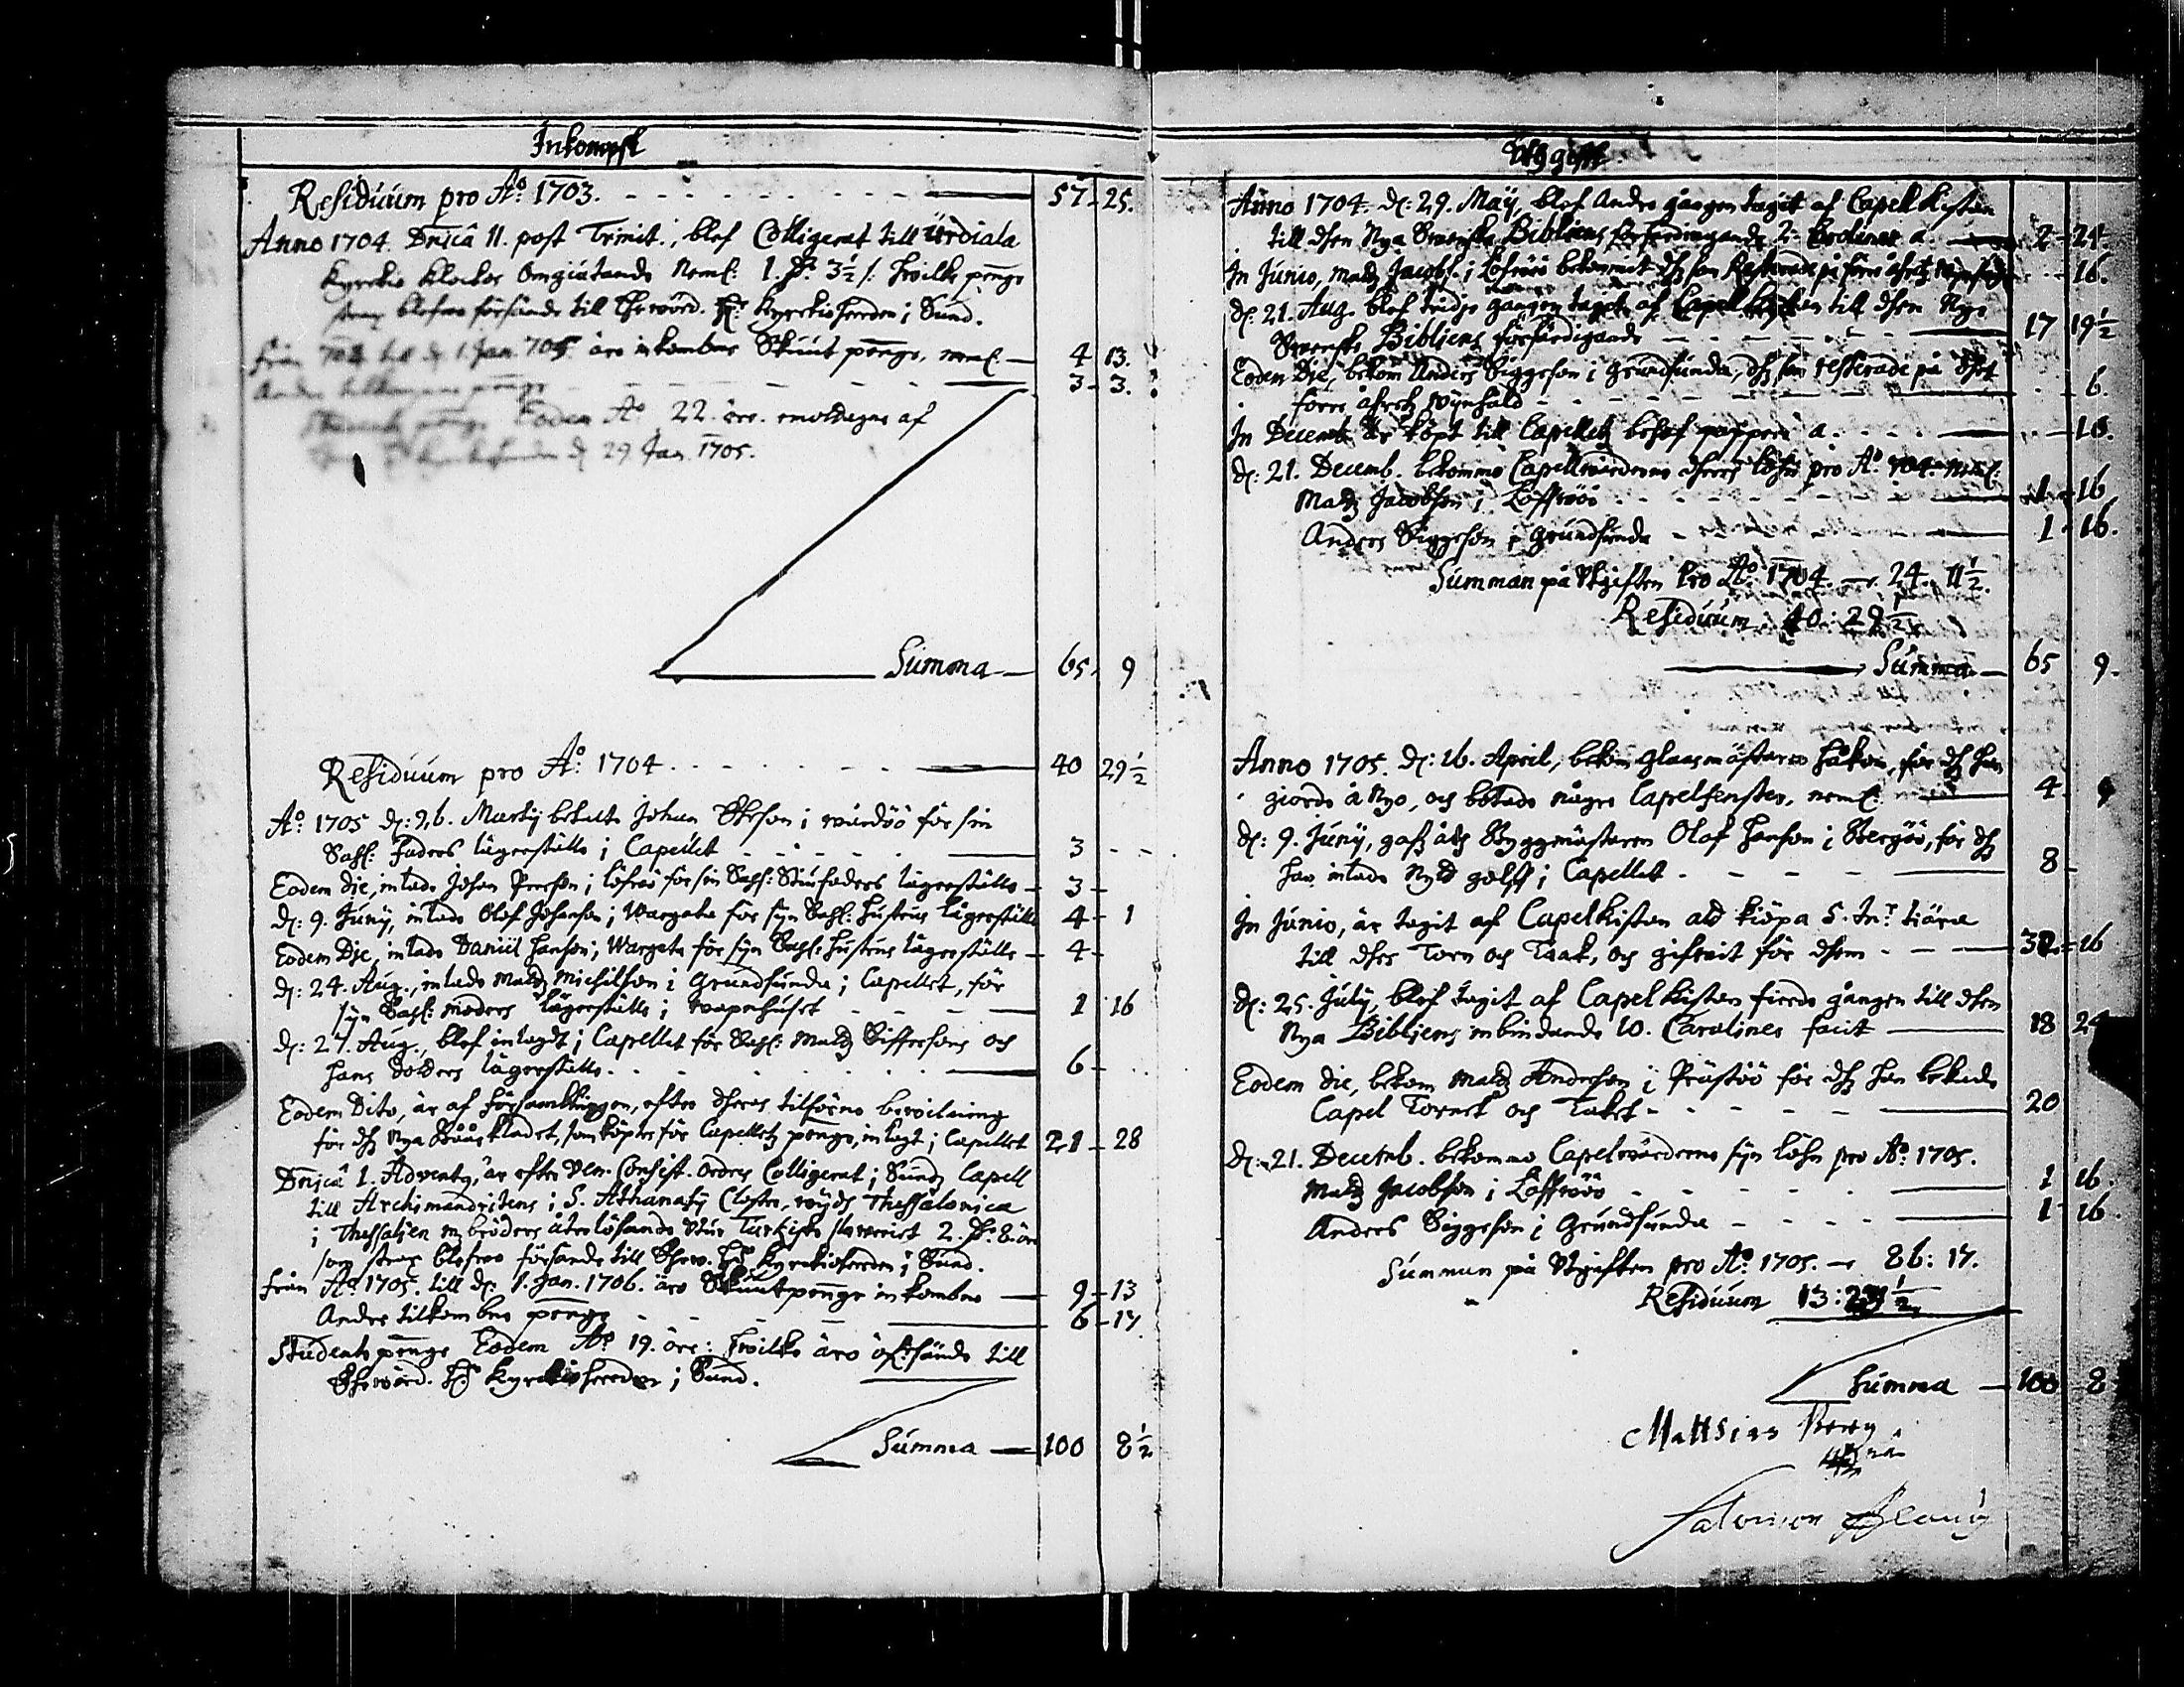 Inkompst
Residuum pro A:o 1703. 57 25.
Anno 1704. Dnicâ 11. post Trinit., blef Colligerat till Urdiala
Kyrckio klockas omgiutande neml: 1. d:r 3½ /: hvilke penge
strax blefwo försände till Ehrwörd. H: Kyrckioherden i Sund.
från 704 till d: 1. Jan. 705 äro inkombne Skuut penge, neml. 4 13.
Andre tillkombne penge 3 3.
Students penge Eodem A:o 22. öre. emottagne af
d: 29 Jan. 1705.
Summa 65 9
Residuum pro A:o 1704 40 29½
A:o 1705 d: 26. Martij betalte Johan i wårdöö för sin
Sahl: Faders lägerställe i Capellet 3
Eodem die, inlade Johan Persson i löfwö för sin Sahl: Stiufaders lägerställe 3
d: 9. Junij, inlade Olof Johanson i Wargata för syn Sahl: hustrus lägerställe 4 1
Eodem Die, inlade Daniel Hanson i Wargata för syn Sahl: hustrus lägerställe 4
d: 24. Aug., inlade Matz Michilson i Grundsunda i Capellet, för
syn Sahl: moders lägerställe i wapnhuset 1 16
d: 27. Aug., blef inlagdt i Capellet för Sahl: Matz Siffersons och
hans dotters lägerställe 6
Eodem Dito, är af församblingen, efter theras tilförne bewilning
för dhz Nya klädet, som köptes för Capelletz penge, inlagt i Capellet 21 28
Dnicâ 1. Adventg, är efter Ven. Consist. ordres Colligerat i Sundz Capell
till Archimandritens i S. Athanasij Closter, wijdh Thessalonica
i Thessalien m. bröders återlösande utur Turkiske slaweriet 2. d:r 8 öre
som strax blefwo försände till Ehrw. H:r Kyrckioherden i Sund.
från A:o 1705. till d: 1. Jan. 1706. äro Skuutpenge inkombne 9 13
Andre tilkombne penge 6 17.
Students penge Eodem A:o 19. öre: hwilke äro öfsände till
Ehrwörd. H:r Kyrckioherden i Sund.
Summa 100 8½
Utgifft
Anno 1704. d: 29. Maij, blef Andre gången tagit af Capell Kistan
till dhen Nya Swenske Bibliens förfärdigande 2. Carliner a 2 24.
In Junio, Matz Jacobs: i Löfwöö bekommit dhz han Resterade på förre åhretz 16.
d: 21. Aug. blef tridje gången taget af Capell kistan till dhen Nye
Swenske Bibliens förfärdigande 17 19½
Eodem Die, bekom Anders Siggeson i Grundsunda, dhz han resterade på dhet
förre åhretz 6.
In Decemb. är köpt till Capelletz behof papper a 10.
d: 21. Decemb. bekomme Capellwärderne theres löhn pro A:o 704. neml:
Matz Jacobson i Löffwöö 1 16
Anders Siggeson i Grundsunda 1 16.
Summan på Utgiften Pro A:o 1704. 24. 11½.
Residuum. 40: 29½
Summa 65 9.
Anno 1705. d: 16. April, bekom Glaasmästaren Håkon, för dhz han
giorde å nyo, och botade någre Capelfenster, neml: 4
d: 9. Junij, gafz åth Byggmästaren Olof Hanson i Bergöö, för dhz
han inlade Nytt golff i Capellet 8
In Junio, är tagit af Capelkistan att kiöpa 5. Tn:r tiära
till dhes Torn och Taak, och gifwit för dhem 32 16
d: 25. July, blef tagit af Capel kistan fierde gången till dhen
Nya Bibliens inbindande 10. Caroliner facit 18 24
Eodem die, bekom Matz Anderson i Prästöö för dhz han bekade
Capel Tornet och Taket 20
d: 21. Decemb. bekomma Capelwärderne syn löhn pro A:o 1705.
Matz Jacobson i Löffwöö 1 16.
Anders Siggeson i Grundsunda 1 16.
Summan på Utgiften pro A:o 1705. 86: 17.
Residuum 13: 23½
Summa 100 8
Matthias
Salomon